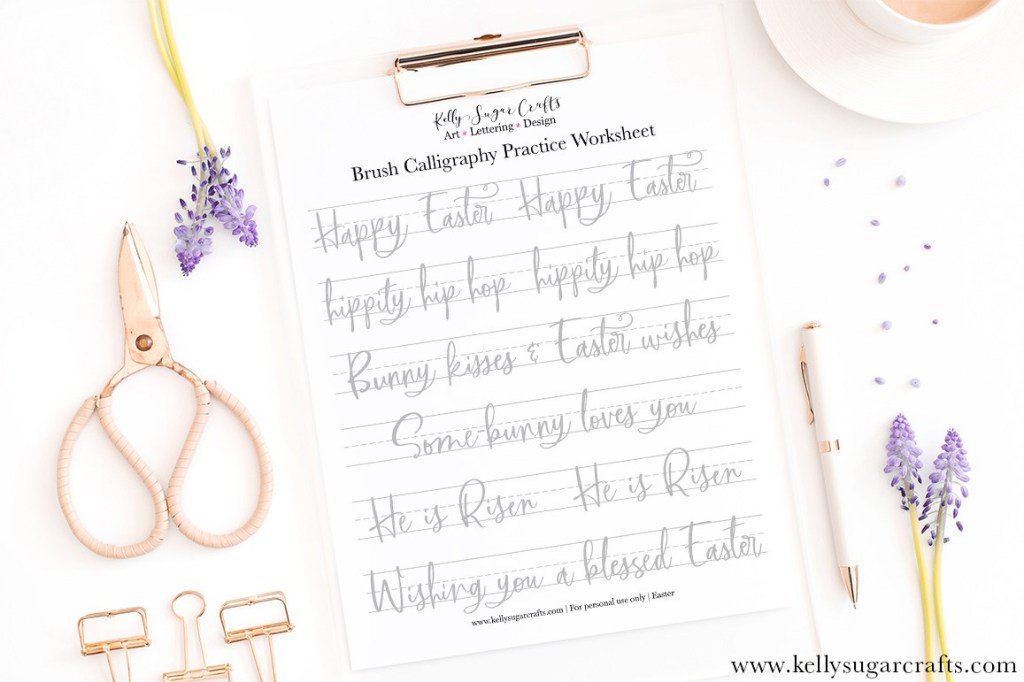 Kelly Sugar Crafts
Art * Lettering * Design
Brush Calligraphy Practice Worksheet
Happy Easter Happy Easter
hippity hip hop hippity hip hop
Bunny kisses & Easter wishes
Some-bunny loves you
He is Risen He is Risen
Wishing you a blessed Easter
www.kellysugarcrafts.com | For personal use only | Easter
www.kellysugarcrafts.com